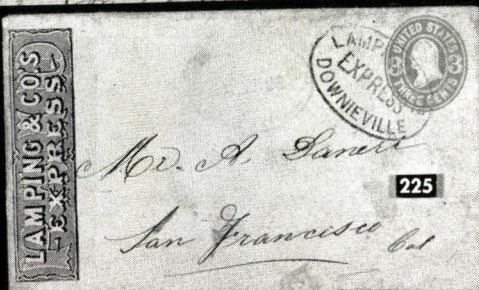 LAMPING & CO'S
EXPRESS
LAMP
EXPRESS
DOWNIEVILLE
UNITED STATES
3 3
THREE CENTS
Mr. A
225
San Francisco
Cal